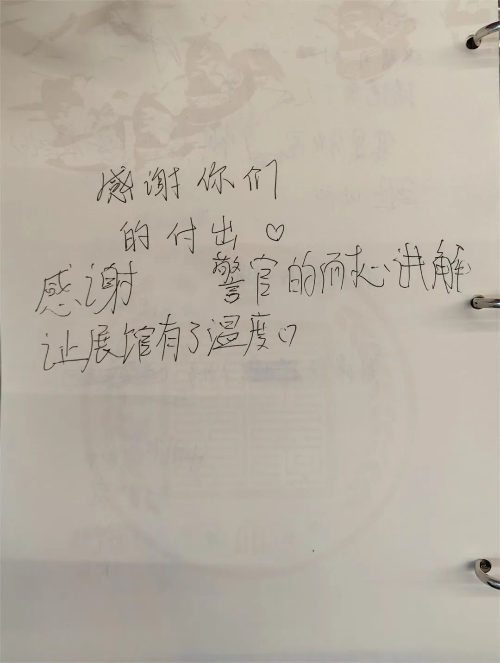 感谢你们
的付出♡
感谢 警官的耐心讲解
让展馆有了温度♡